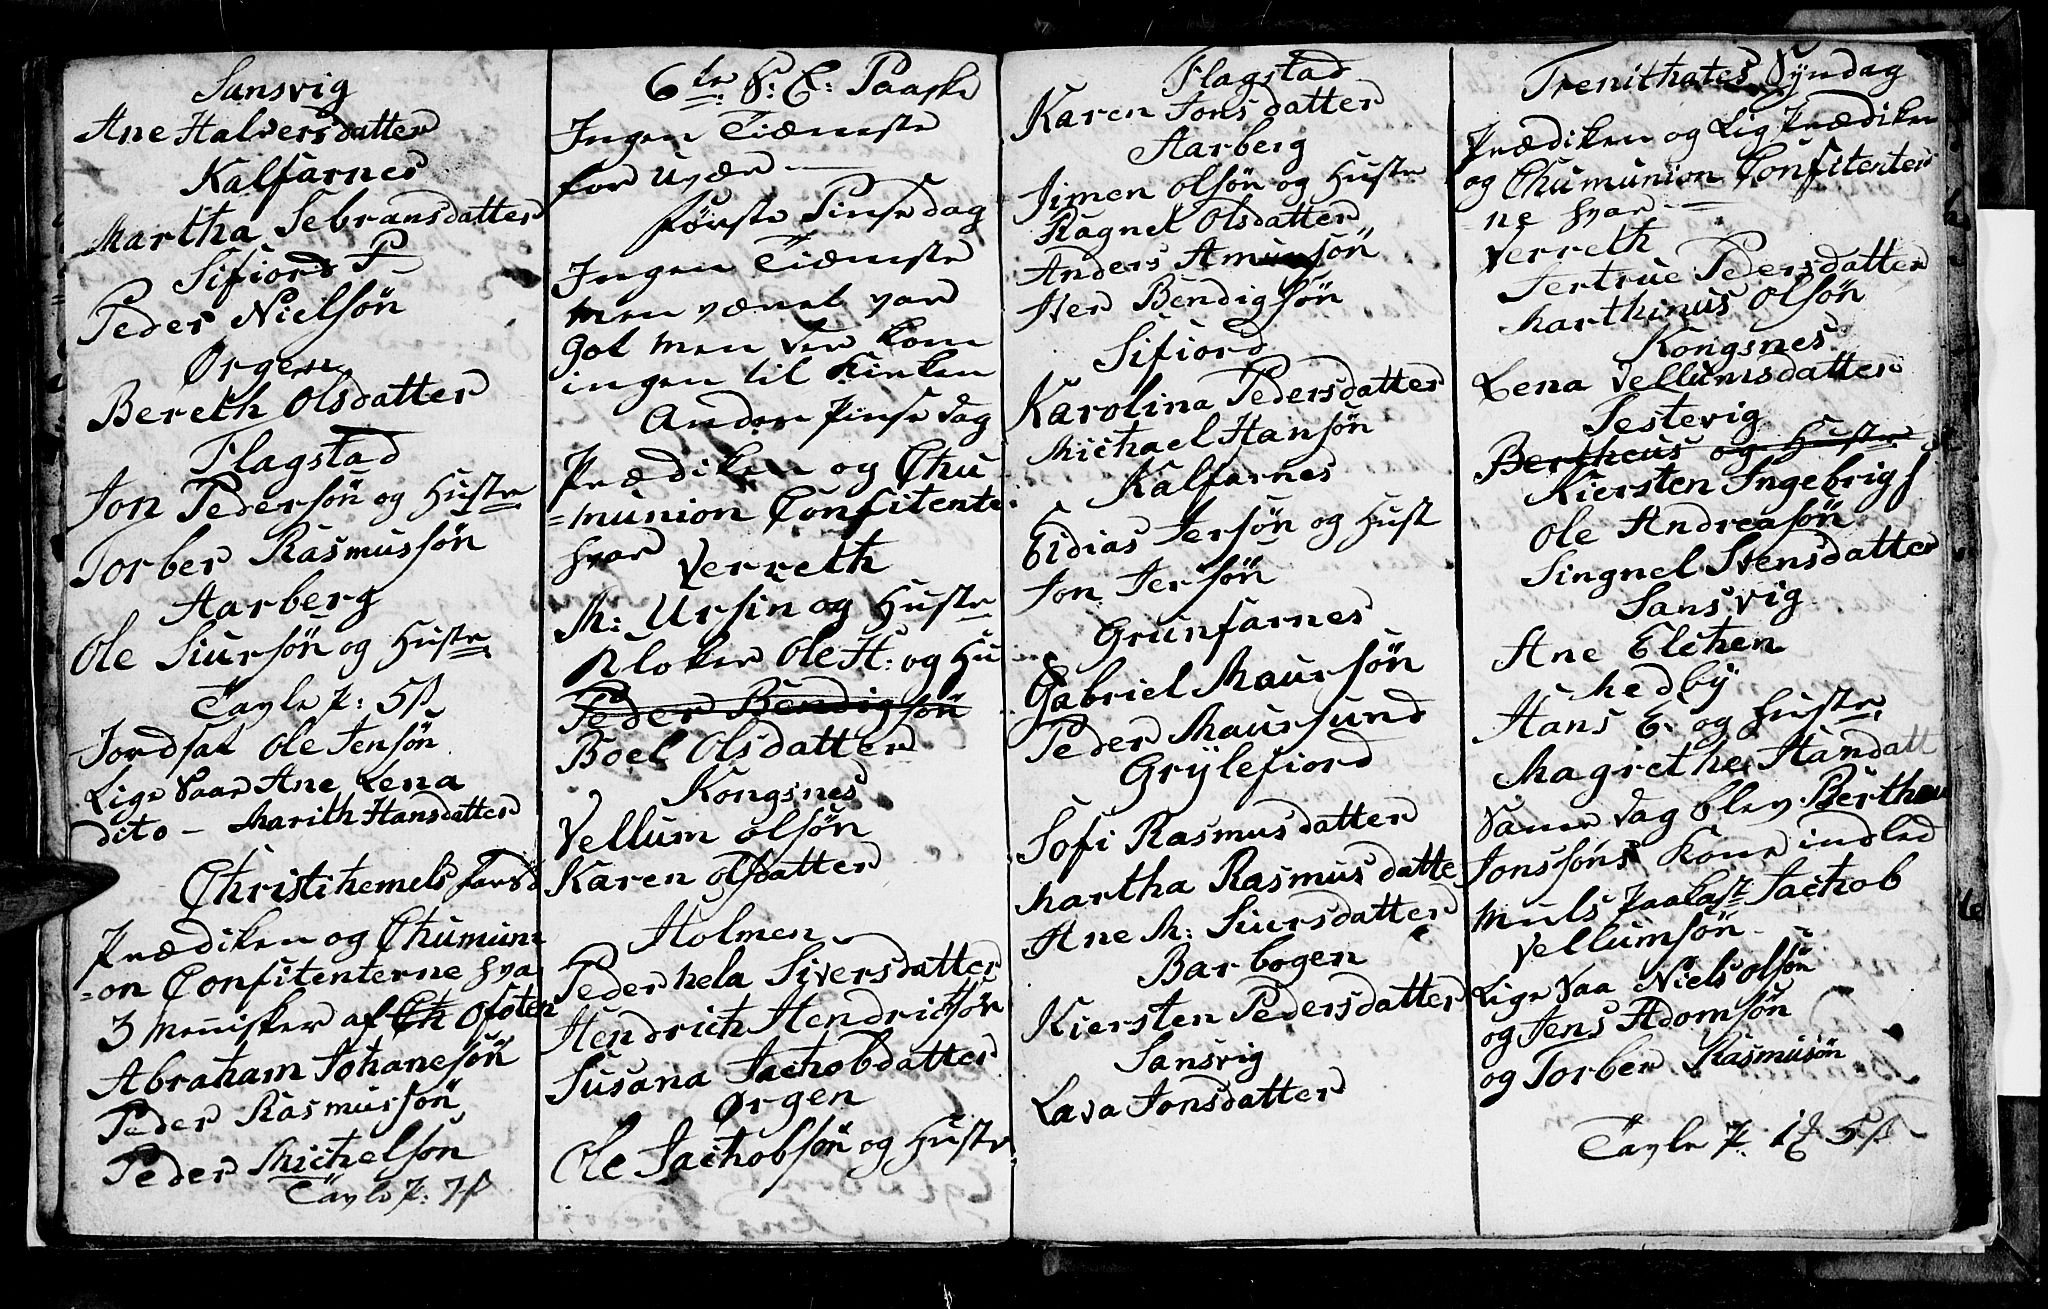 Sansvig
Ane Halversdatter
Kalfarnes
Martha Sebransdatter
Sifiord P
Peder Nielsön
Ørgen
Bereth Olsdatter
Flagstad
Jon Pedersön og Hustr
Torber Rasmussön
Aarberg
Ole Siursön og Hustr
Tavle p: 5 ß
Jordsat Ole Jensön
Lige Saa Ane Lena
dito - Marith Hansdatter
Christi hemels fard
Prædiken og Chumuni
=on Confitenterne hva
3 Mennisker af Ch Ofoten
Abraham Johanesön
Peder Rasmussön
Peder Michelsön
Tavle p: 7 ß
6te S: E: Paaske
Ingen Tiæneste
for uvær
første Pinse dag
Ingen Tiæneste
men været var
got men der kom
ingen til Kirken
Anden Pinse dag
Prædiken og Chu
=munion Confitente
hvar
Verreth
M: Ursin og Hustr
Kloker Ole H: og Hu
Peder Bendigsön
Boel Olsdatter
Kongsnes
Vellum Olsön
Karen Olsdatter
Holmen
Peder hela Siversdatter
Hendrich Hendrichsön
Susana Jachobdatter
Ørgen
Ole Jachobsön og Hustr
Flagstad
Karen Jonsdatter
Aarberg
Simen Olsön og Hustr
Ragnel Olsdatter
Anders Amunsön
Iver Bendigsön
Sifiord
Karolina Pedersdatter
Michael Hansön
Kalfarnes
Eidias Jersön og Hust
Jon Jersön
Grunfarnes
Gabriel Maursön
Peder Maursund
Grÿlefiord
Sofi Rasmusdatter
Martha Rasmusdatte
Ane M: Siursdatter
Barbogen
Kiersten Pedersdatter
Sansvig
Lava Jonsdatter
Trenithates Syndag
Prædiken og Lig Prædiken
og Chumunion Confitenter
=ne hvar
Verreth
Jertrue Pedersdatter
Marthinus Olsön
Kongsnes
Lena Vellumsdatter
Sestevig
Bertheus og Hustr
Kiersten Ingebrigs
Ole Andreasön
Singnel Svensdatter
Sansvig
Ane Elchen
Medbÿ
Hans E. og Hustr
Magrethe Handatt
Same dag blev Bertheu
Jonssöns Kone indled
Jachob
Vellumsön
Lige Saa Niels Olsön
og Jens Adomsön
og Torber Rasmusön
Tavle p: 5 ß